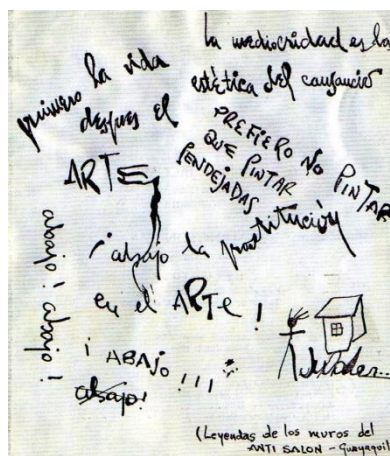 la mediocridad es la
estética del cansancio
primero la vida
despues el
ARTE
PREFIERO NO PINTAR
QUE PINTAR
PENDEJADAS
¡abajo la prostitución
en el ARTE!
¡ABAJO!!!
abajo!
abajo! abajo!
(Leyendas de los muros del
ANTI SALON - Guayaquil